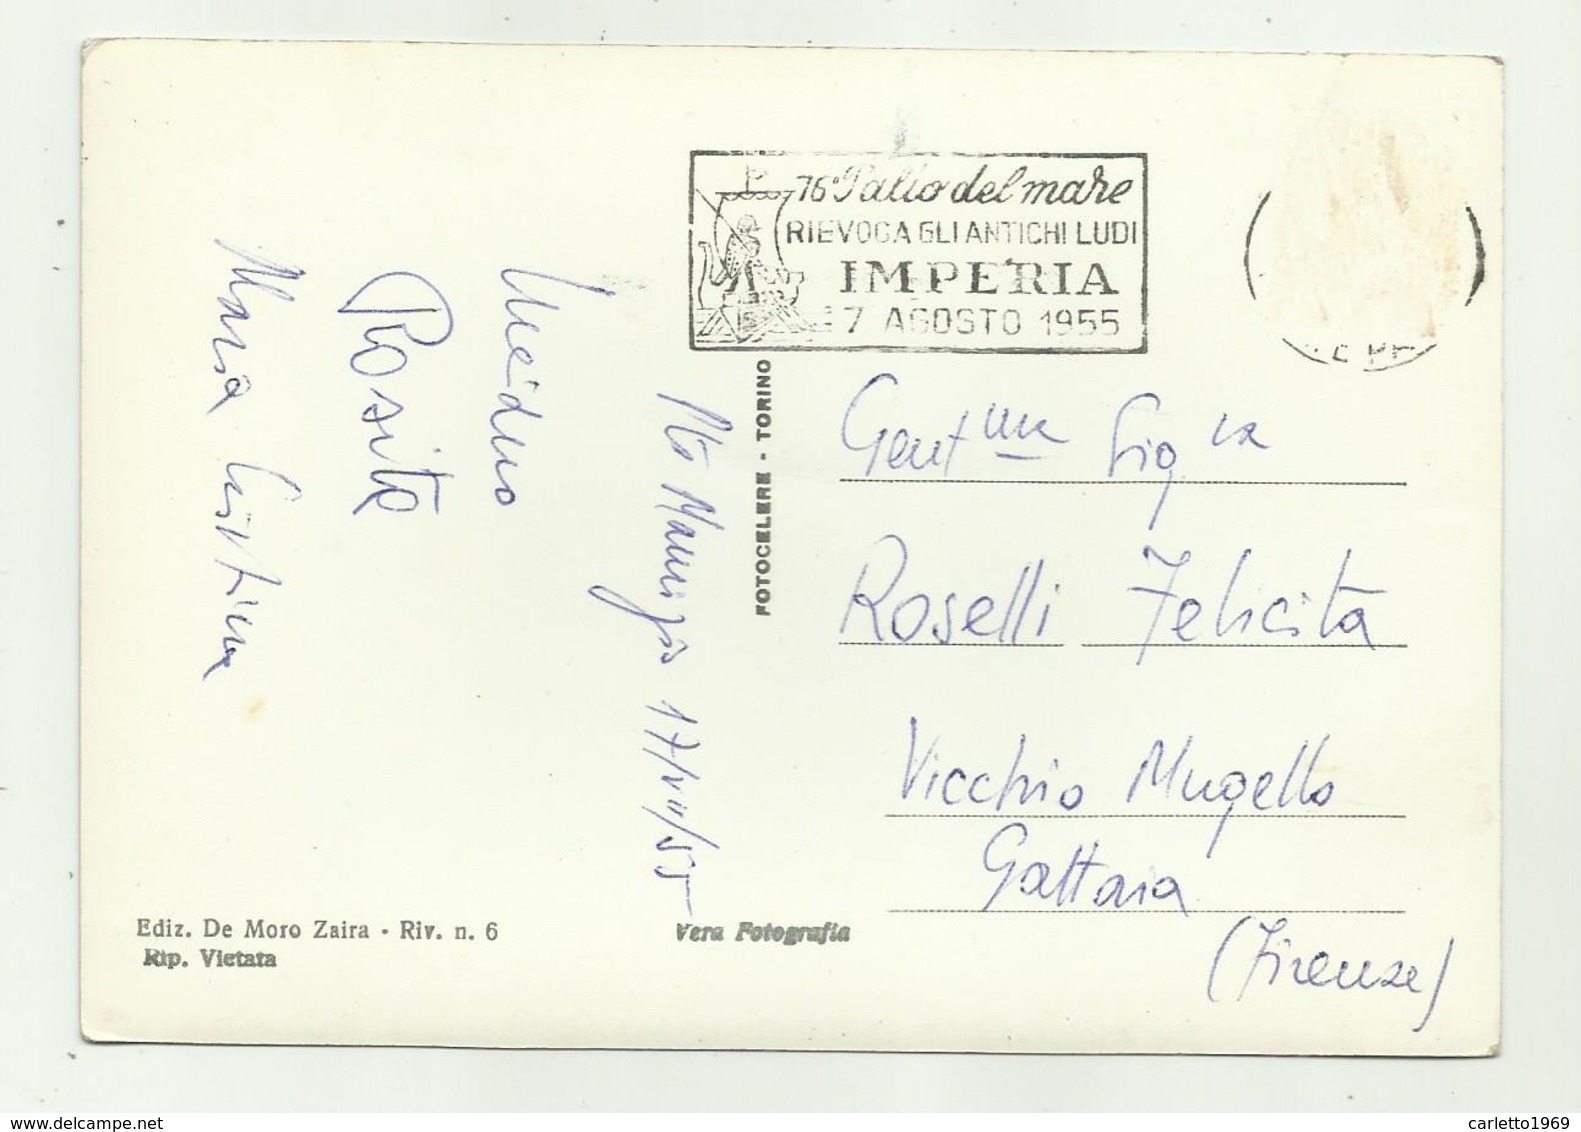 76° Palio del mare
RIEVOCA GLI ANTICHI LUDI
IMPERIA
7 AGOSTO 1955
FOTOCELERE - TORINO
Pto Maurizio 17/VII/55
Rosita
Maria Cristina
Gent.ma Sig.ra
Roselli Felicita
Vicchio Mugello
Gattaia
(Firenze)
Ediz. De Moro Zaira - Riv. n. 6
Rip. Vietata
Vera Fotografia
carletto1969